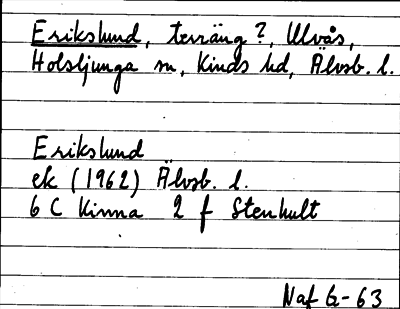 Erikslund, terräng?, Ulvås,
Holsljunga sn, Kinds hd, Älvsb. l.
Erikslund
ek (1962) Älvsb. l.
6 C Kinna 2 f Stenhult
Naf G-63